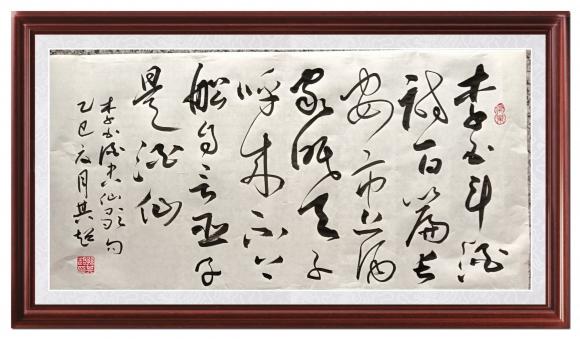 李白斗酒
诗百篇长
安市上酒
家眠天子
呼来不上
船自言臣
是酒仙
李白酒中八仙歌句
乙巳夏月其超